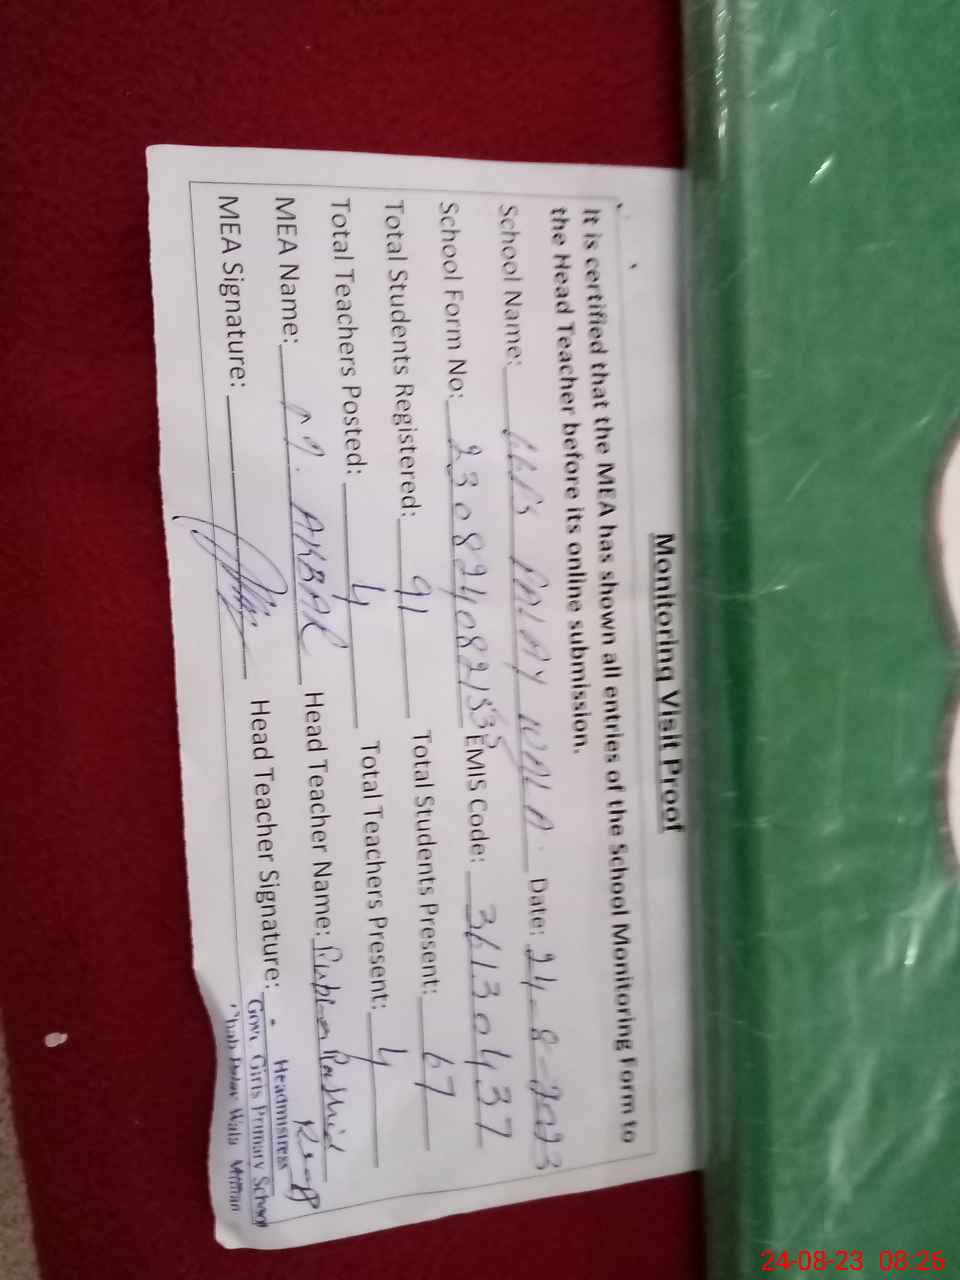 Monitoring Visit Proof
It is certified that the MEA has shown all entries of the School Monitoring Form to
the Head Teacher before its online submission.
School Name: PALAY WALA Date: 24-8-2023
School Form No: EMIS Code: 36130437
Total Students Registered: 91 Total Students Present: 67
Total Teachers Posted: 4 Total Teachers Present: 4
MEA Name: M. AKBAR Head Teacher Name: Rubina Rashid
MEA Signature: Head Teacher Signature:
Headmistress
Govt. Girls Primary School
Chah Wala Multan
24-08-23 08:26